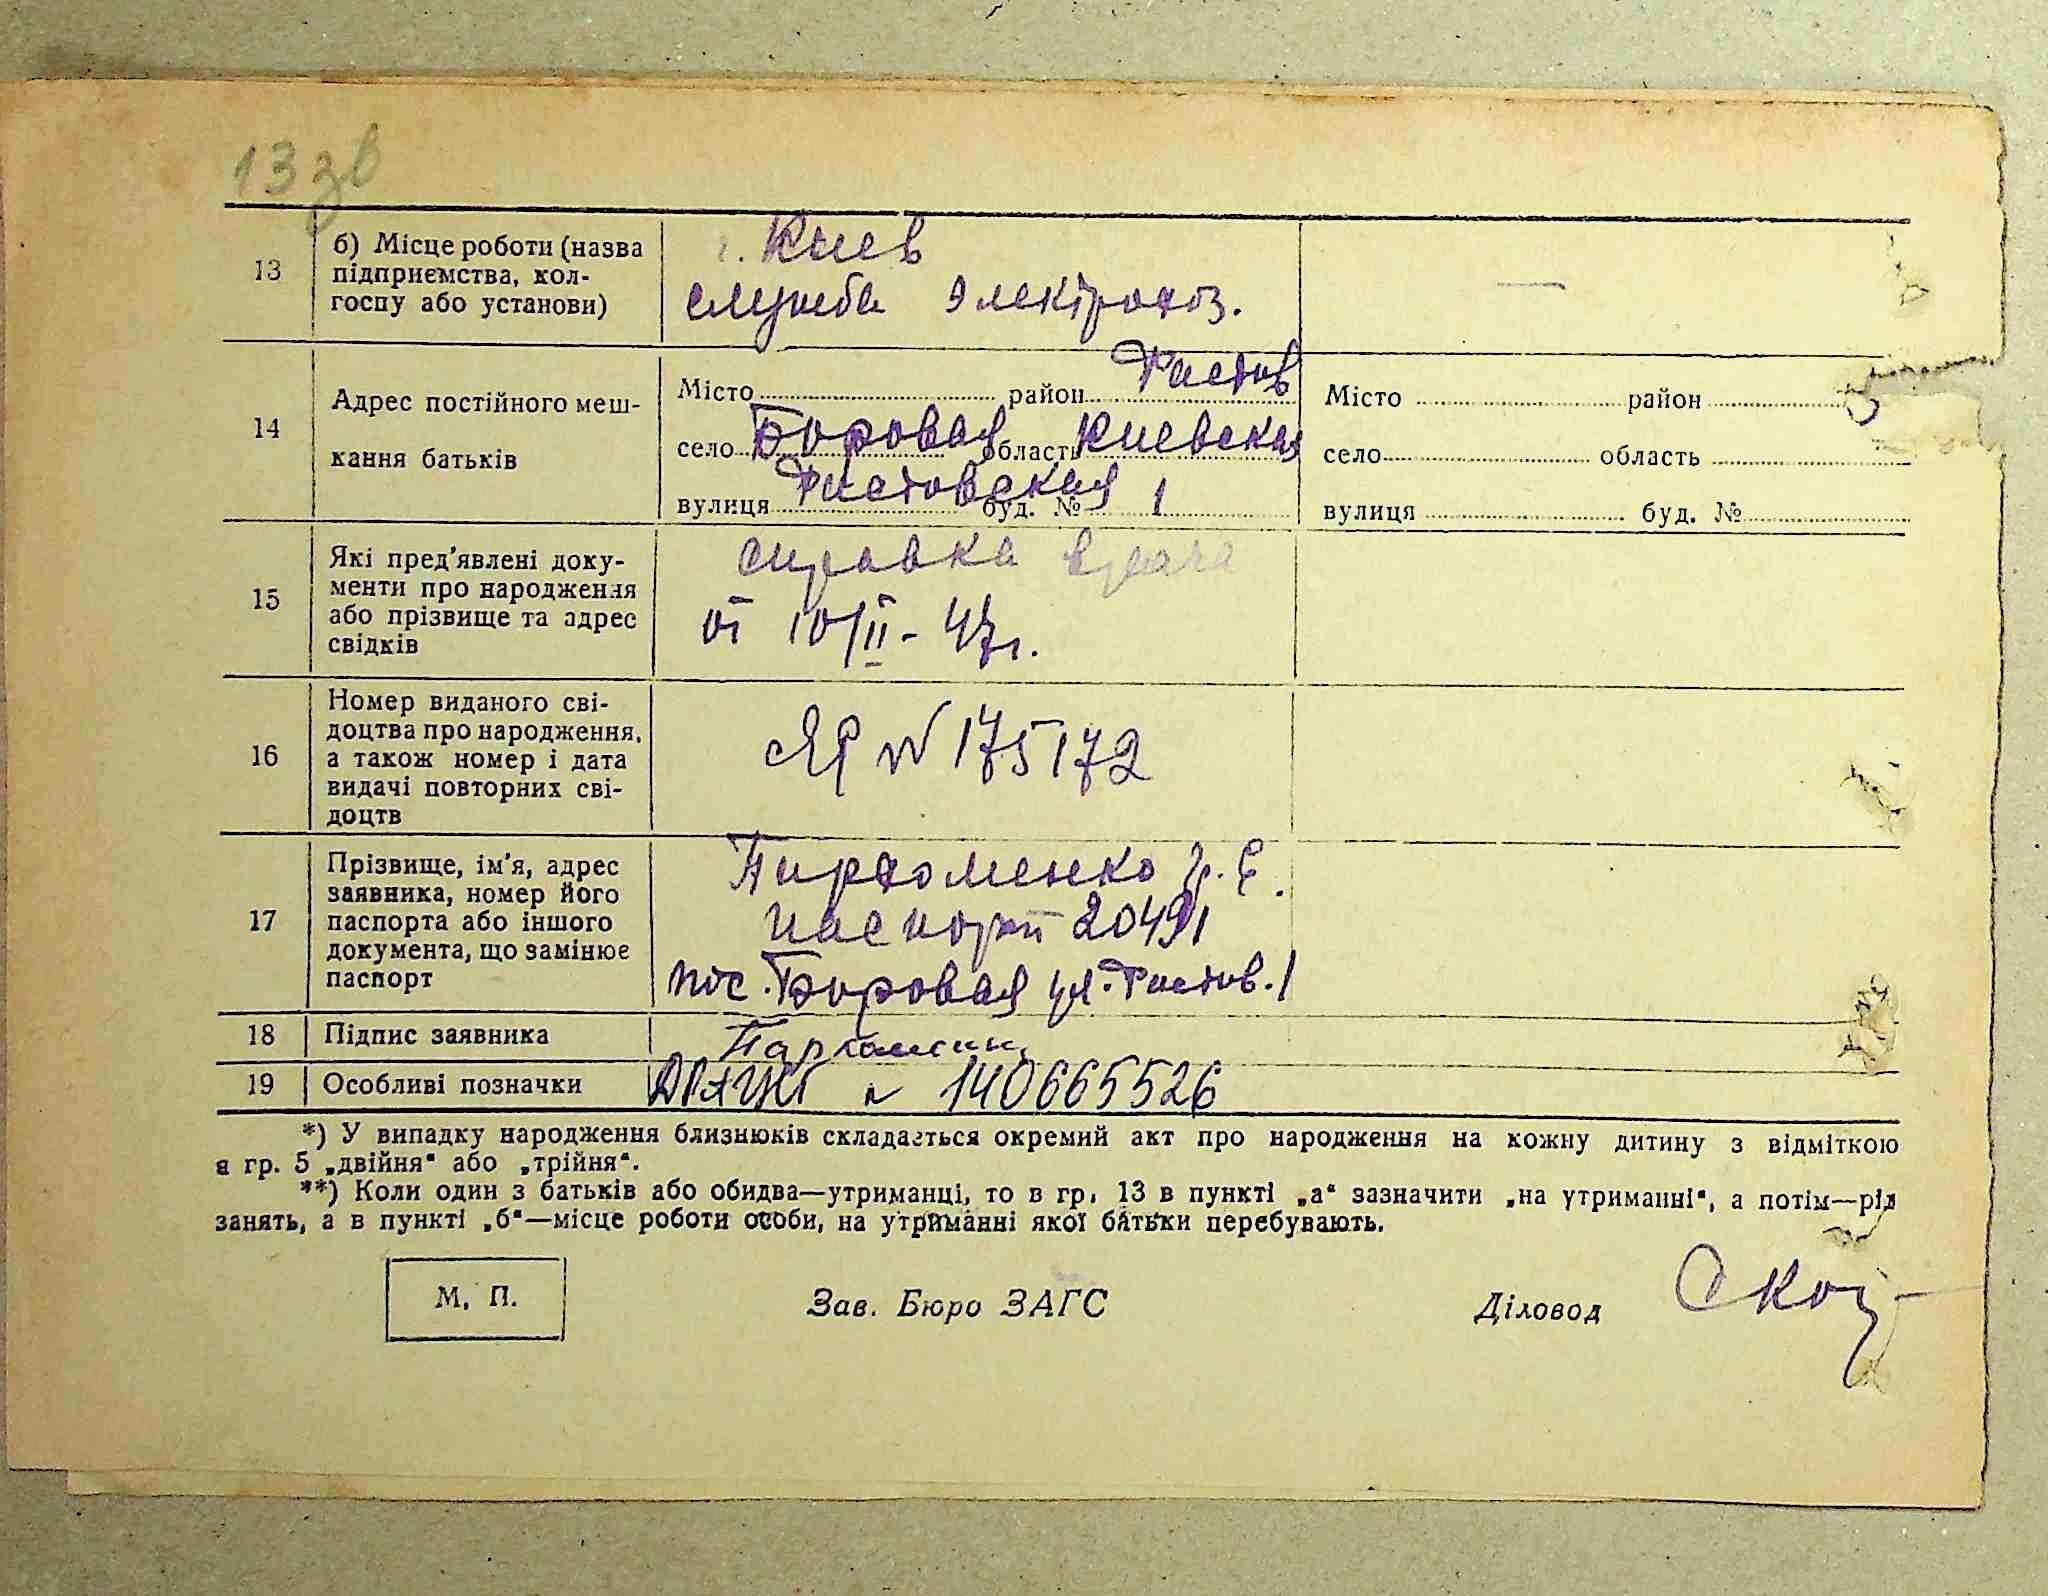 13 зв
13
б) Місце роботи (назва
підприємства, кол-
госпу або установи)
г. Киев
служба электрохоз.
—
14
Адрес постійного меш-
кання батьків
Місто район Фастов
село Боровая область Киевская
вулиця Фастовская буд. № 1
Місто район
село область
вулиця буд. №
15
Які пред'явлені доку-
менти про народження
або прізвище та адрес
свідків
справка врача
от 10/II - 47г.
16
Номер виданого сві-
доцтва про народження,
а також номер і дата
видачі повторних сві-
доцтв
ЯР № 175172
17
Прізвище, ім'я, адрес
заявника, номер його
паспорта або іншого
документа, що замінює
паспорт
Пархоменко Г. Е.
паспорт 20491
пос. Боровая ул. Фастов. 1
18
Підпис заявника
Пархоменк
19
Особливі позначки
ДРАЦСГ № 140665526
*) У випадку народження близнюків складається окремий акт про народження на кожну дитину з відміткою
в гр. 5 „двійня“ або „трійня“.
**) Коли один з батьків або обидва—утриманці, то в гр. 13 в пункті „а“ зазначити „на утриманні“, а потім—рід
занять, а в пункті „б“—місце роботи особи, на утриманні якої батьки перебувають.
М. П.
Зав. Бюро ЗАГС
Діловод